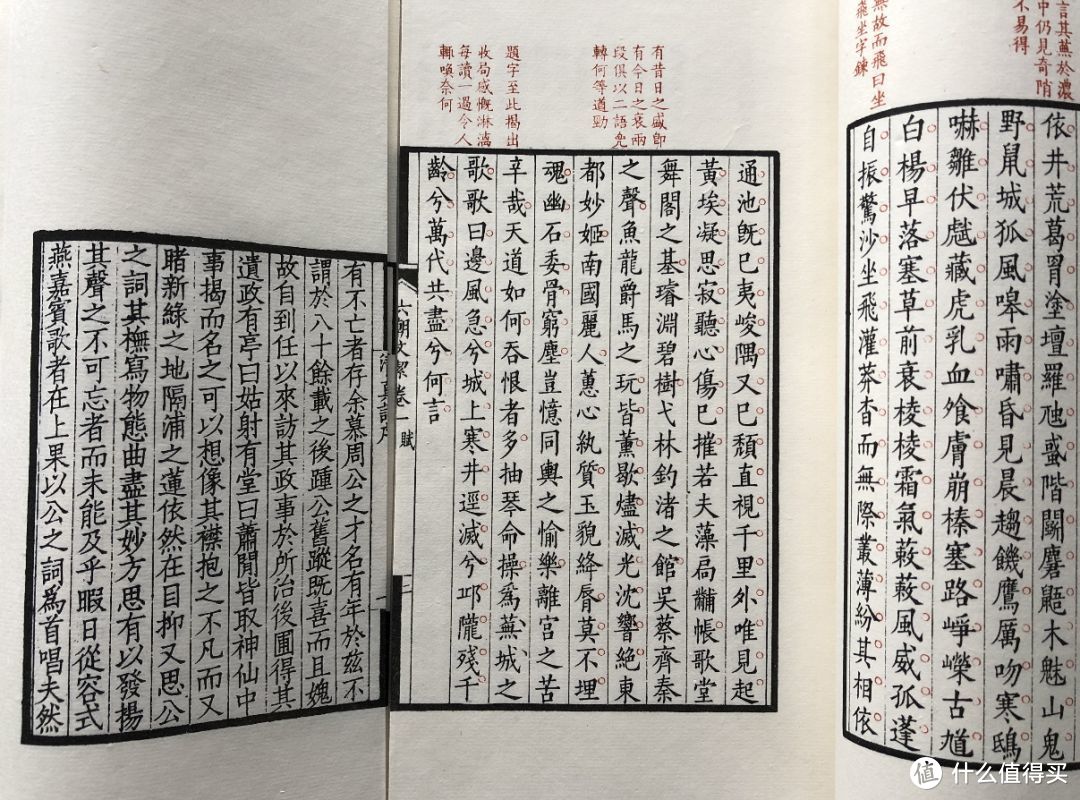 言其蕪於濃
中仍見奇隋
不易得
無故而飛曰坐
飛坐字鍊
依井荒葛罥塗壇羅虺蜮階鬬麏鼯木魅山鬼
野鼠城狐風嗥雨嘯昏見晨趨饑鷹厲吻寒鴟
嚇雛伏虣藏虎乳血飧膚崩榛塞路崢嶸古馗
白楊早落塞草前衰稜稜霜氣蔌蔌風威孤蓬
自振驚沙坐飛灌莽杳而無際叢薄紛其相依
有昔日之盛即
有今日之衰兩
段俱以二語兜
轉何等遒勁
題字至此揭出
收局感慨淋漓
每讀一過令人
輒喚奈何
通池既已夷峻隅又已頹直視千里外唯見起
黃埃凝思寂聽心傷已摧若夫藻扃黼帳歌堂
舞閣之基璿淵碧樹弋林釣渚之館吳蔡齊秦
之聲魚龍爵馬之玩皆薰歇燼滅光沈響絕東
都妙姬南國麗人蕙心紈質玉貌絳脣莫不埋
魂幽石委骨窮塵豈憶同輿之愉樂離宮之苦
辛哉天道如何吞恨者多抽琴命操為蕪城之
歌歌曰邊風急兮城上寒井逕滅兮邱隴殘千
齡兮萬代共盡兮何言
六朝文絜卷一 賦 三
清真詞序 一
有不亡者存余慕周公之才名有年於茲不
謂於八十餘載之後踵公舊蹤既喜而且媿
故自到任以來訪其政事於所治後圃得其
遺政有亭曰姑射有堂曰蕭閒皆取神仙中
事揭而名之可以想像其襟抱之不凡而又
睹新綠之池隔浦之蓮依然在目抑又思公
之詞其撫寫物態曲盡其妙方思有以發揚
其聲之不可忘者而未能及乎暇日從容式
燕嘉賓歌者在上果以公之詞為首唱夫然
值 什么值得买